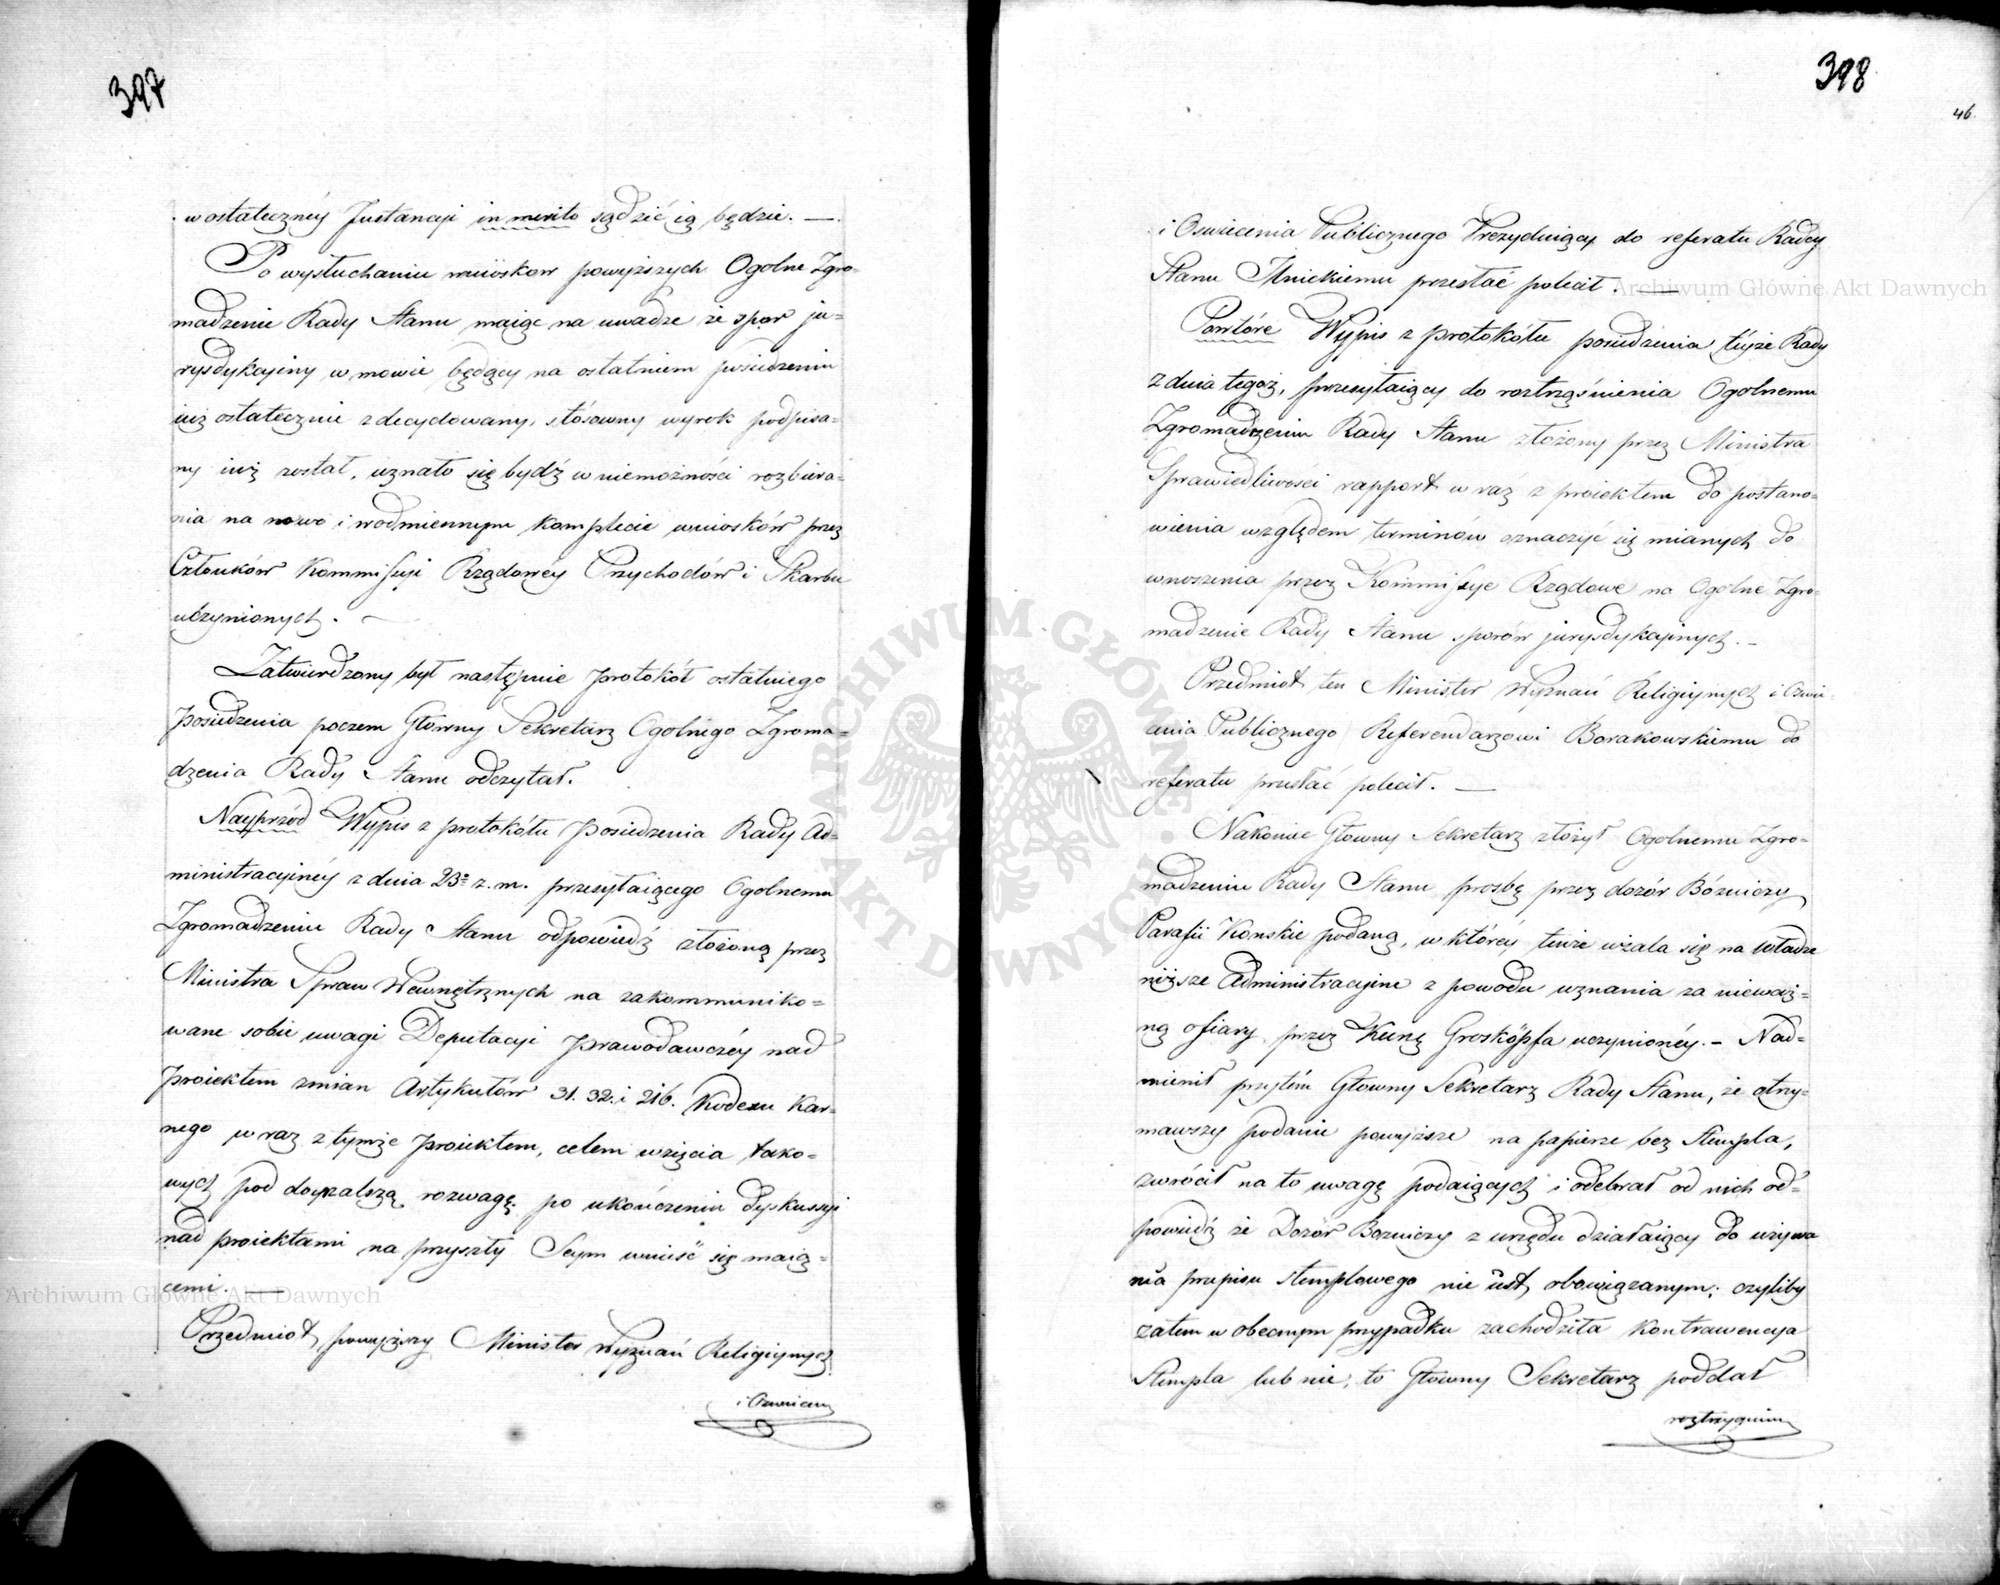 397
w ostatecznéy Jnstancyi in merito sądzić ią będzie. —
Po wysłuchaniu wniosków powyższych Ogolne Zgro-
madzenie Rady Stanu maiąc na uwadze że spór ju-
rysdykcyiny w mowie będący na ostatniem posiedzeniu
iuż ostatecznie zdecydowany, stósowny wyrok podpisa-
ny iuż został, uznało się bydź w niemożności rozbiera-
nia na nowo i w odmiennym komplecie wniosków przez
Członków Kommissyi Rządowéy Przychodów i Skarbu
uczynionych. —
Zatwierdzony był następnie protokół ostatniego
posiedzenia poczem Główny Sekretarz Ogolnego Zgroma-
dzenia Rady Stanu odczytał.
Nayprzód Wypis z protokółu posiedzenia Rady Ad-
ministracyinéy z dnia 23º z. m. przesyłaiącego Ogolnemu
Zgromadzeniu Rady Stanu odpowiedź złożoną przez
Ministra Spraw Wewnętrznych na zakommuniko-
wane sobie uwagi Deputacyi prawodawczéy nad
proiektem zmian Artykułów 31. 32. i 216. Kodexu Kar-
nego wraz z tymże proiektem, celem wzięcia tako-
wych pod doyzalszą rozwagę po ukończeniu dyskussyi
nad proiektami na przyszły Seym wnieść się maią-
cemi. —
Przedmiot powyższy Minister Wyznań Religiynych
i Oswiecen
398
46.
i Oswiecenia Publicznego Prezyduiący do referatu Radcy
Stanu Jlnickiemu przesłać polecił. —
Powtóre Wypis z protokółu posiedzenia téyże Rady
z dnia tegoż, przesyłaiący do roztrząśnienia Ogolnemu
Zgromadzeniu Rady Stanu złożony przez Ministra
Sprawiedliwości rapport wraz z proiektem do postano-
wienia względem terminów oznaczyć się mianych do
wnoszenia przez Kommissye Rządowe na Ogolne Zgro-
madzenie Rady Stanu sporów jurysdykcyinych. —
Przedmiot ten Minister Wyznań Religiynych i Oswie-
cenia Publicznego Referendarzowi Borakowskiemu do
referatu przesłać polecił. —
Nakoniec Główny Sekretarz złożył Ogolnemu Zgro-
madzeniu Rady Stanu prosbę przez dozór Bóżniczy
Parafii Konskie podaną, w któréy tenże użala się na władze
niższe Administracyine z powodu uznania za nieważ-
ną ofiary przez Kunę Groskópfa uczynionéy. — Nad-
mienił przytém Główny Sekretarz Rady Stanu, że otrzy-
mawszy podanie powyższe na papierze bez Stempla,
zwrócił na to uwagę podaiących i odebrał od nich od-
powiedź że Dozór Bożniczy z urzędu działaiący do używa
nia przepisu stemplowego nie iest obowiązanym; czyliby
zatem w obecnym przypadku zachodziła kontrawencya
Stempla lub nie, to Główny Sekretarz poddał
roztrzygnieniu
Archiwum Główne Akt Dawnych
Archiwum Główne Akt Dawnych
ARCHIWUM GŁÓWNE AKT DAWNYCH